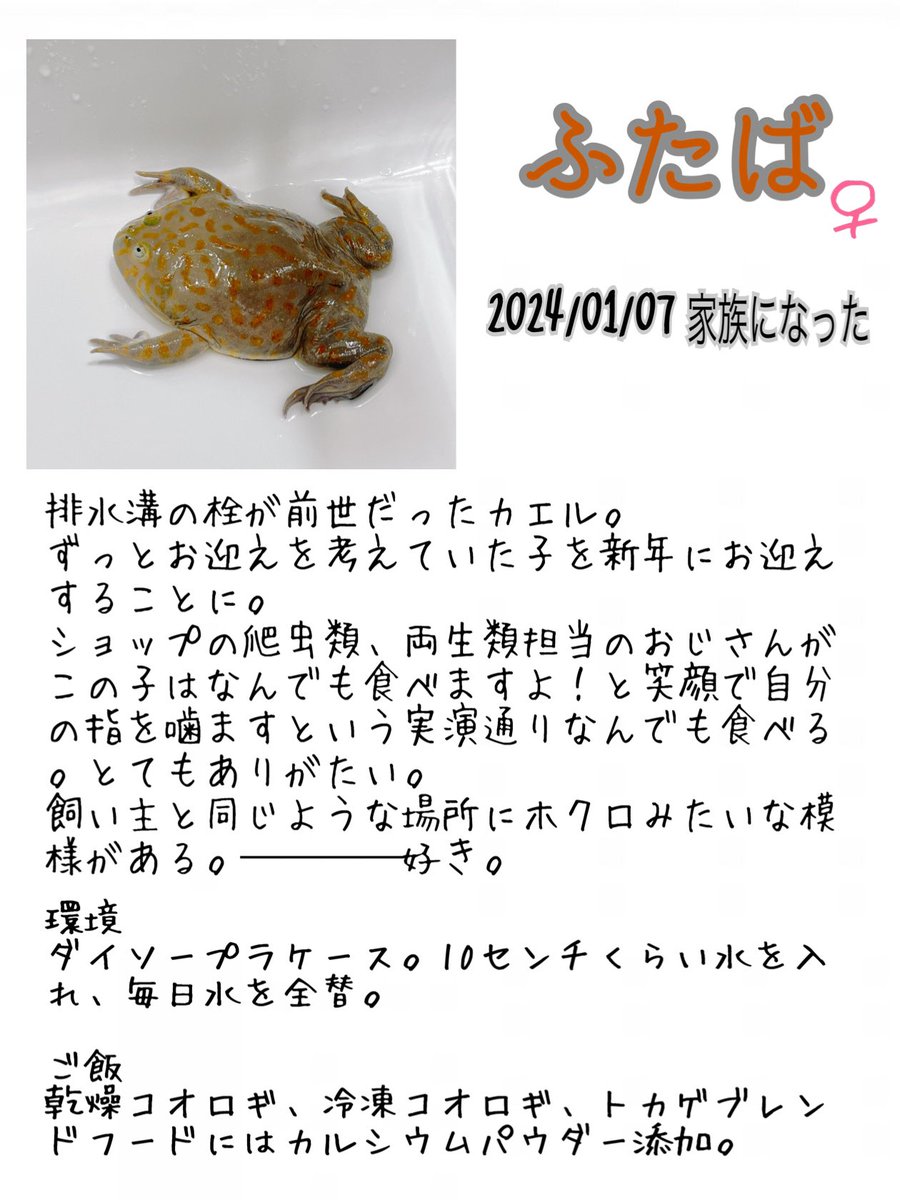 ふたば♀
2024/01/07 家族になった
排水溝の栓が前世だったカエル。
ずっとお迎えを考えていた子を新年にお迎え
することに。
ショップの爬虫類、両生類担当のおじさんが
この子はなんでも食べますよ！と笑顔で自分
の指を噛ますという実演通りなんでも食べる
。とてもありがたい。
飼い主と同じような場所にホクロみたいな模
様がある。――――好き。
環境
ダイソープラケース。10センチくらい水を入
れ、毎日水を全替。
ご飯
乾燥コオロギ、冷凍コオロギ、トカゲブレン
ドフードにはカルシウムパウダー添加。